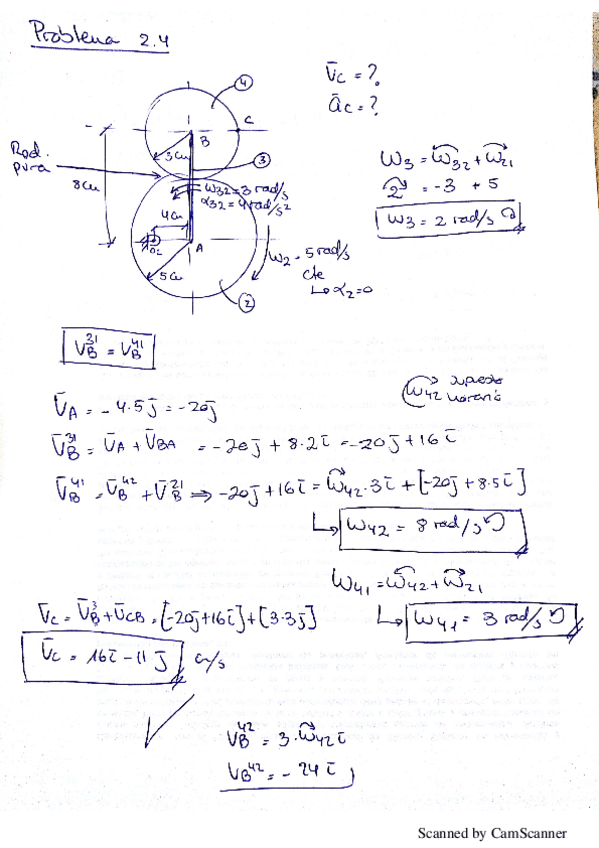 Problema 2.4
V̄c = ?
āc = ?
④
C
B
3cm
③
Rod.
pura
8cm
ω32 = 3 rad/s
α32 = 4 rad/s²
4cm
O2
A
5cm
②
ω2 = 5 rad/s
cte
↳ α2 = 0
ω3 = ω32 + ω21
2 = -3 + 5
ω3 = 2 rad/s ↻
V_B^31 = V_B^41
V̄A = -4.5 j̄ = -20j̄
V̄_B^31 = V̄A + V̄BA = -20j̄ + 8.2ī = -20j̄ + 16ī
ω42 supuesto horario
V̄_B^41 = V̄_B^42 + V̄_B^21 ⇒ -20j + 16ī = ω42.3ī + [-20j + 8.5ī]
↳ ω42 = 8 rad/s ↺
ω41 = ω42 + ω21
↳ ω41 = 3 rad/s ↺
V̄c = V̄_B^3 + V̄CB = [-20j + 16ī] + [3.3j]
V̄c = 16ī - 11j cm/s
V_B^42 = 3.ω42 ī
V_B^42 = -24 ī
Scanned by CamScanner